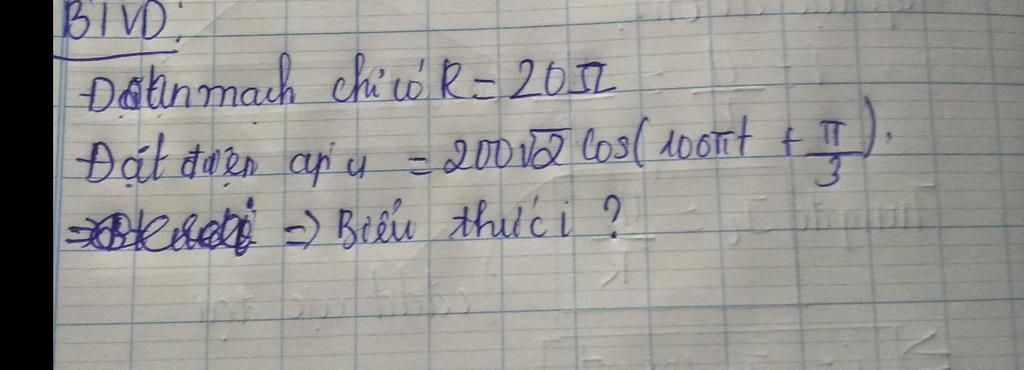 BTVD:
Đoạn mạch chỉ có R = 20Ω
Đặt điện áp u = 200√2 cos(100πt + π/3).
=> Biểu thức i ?